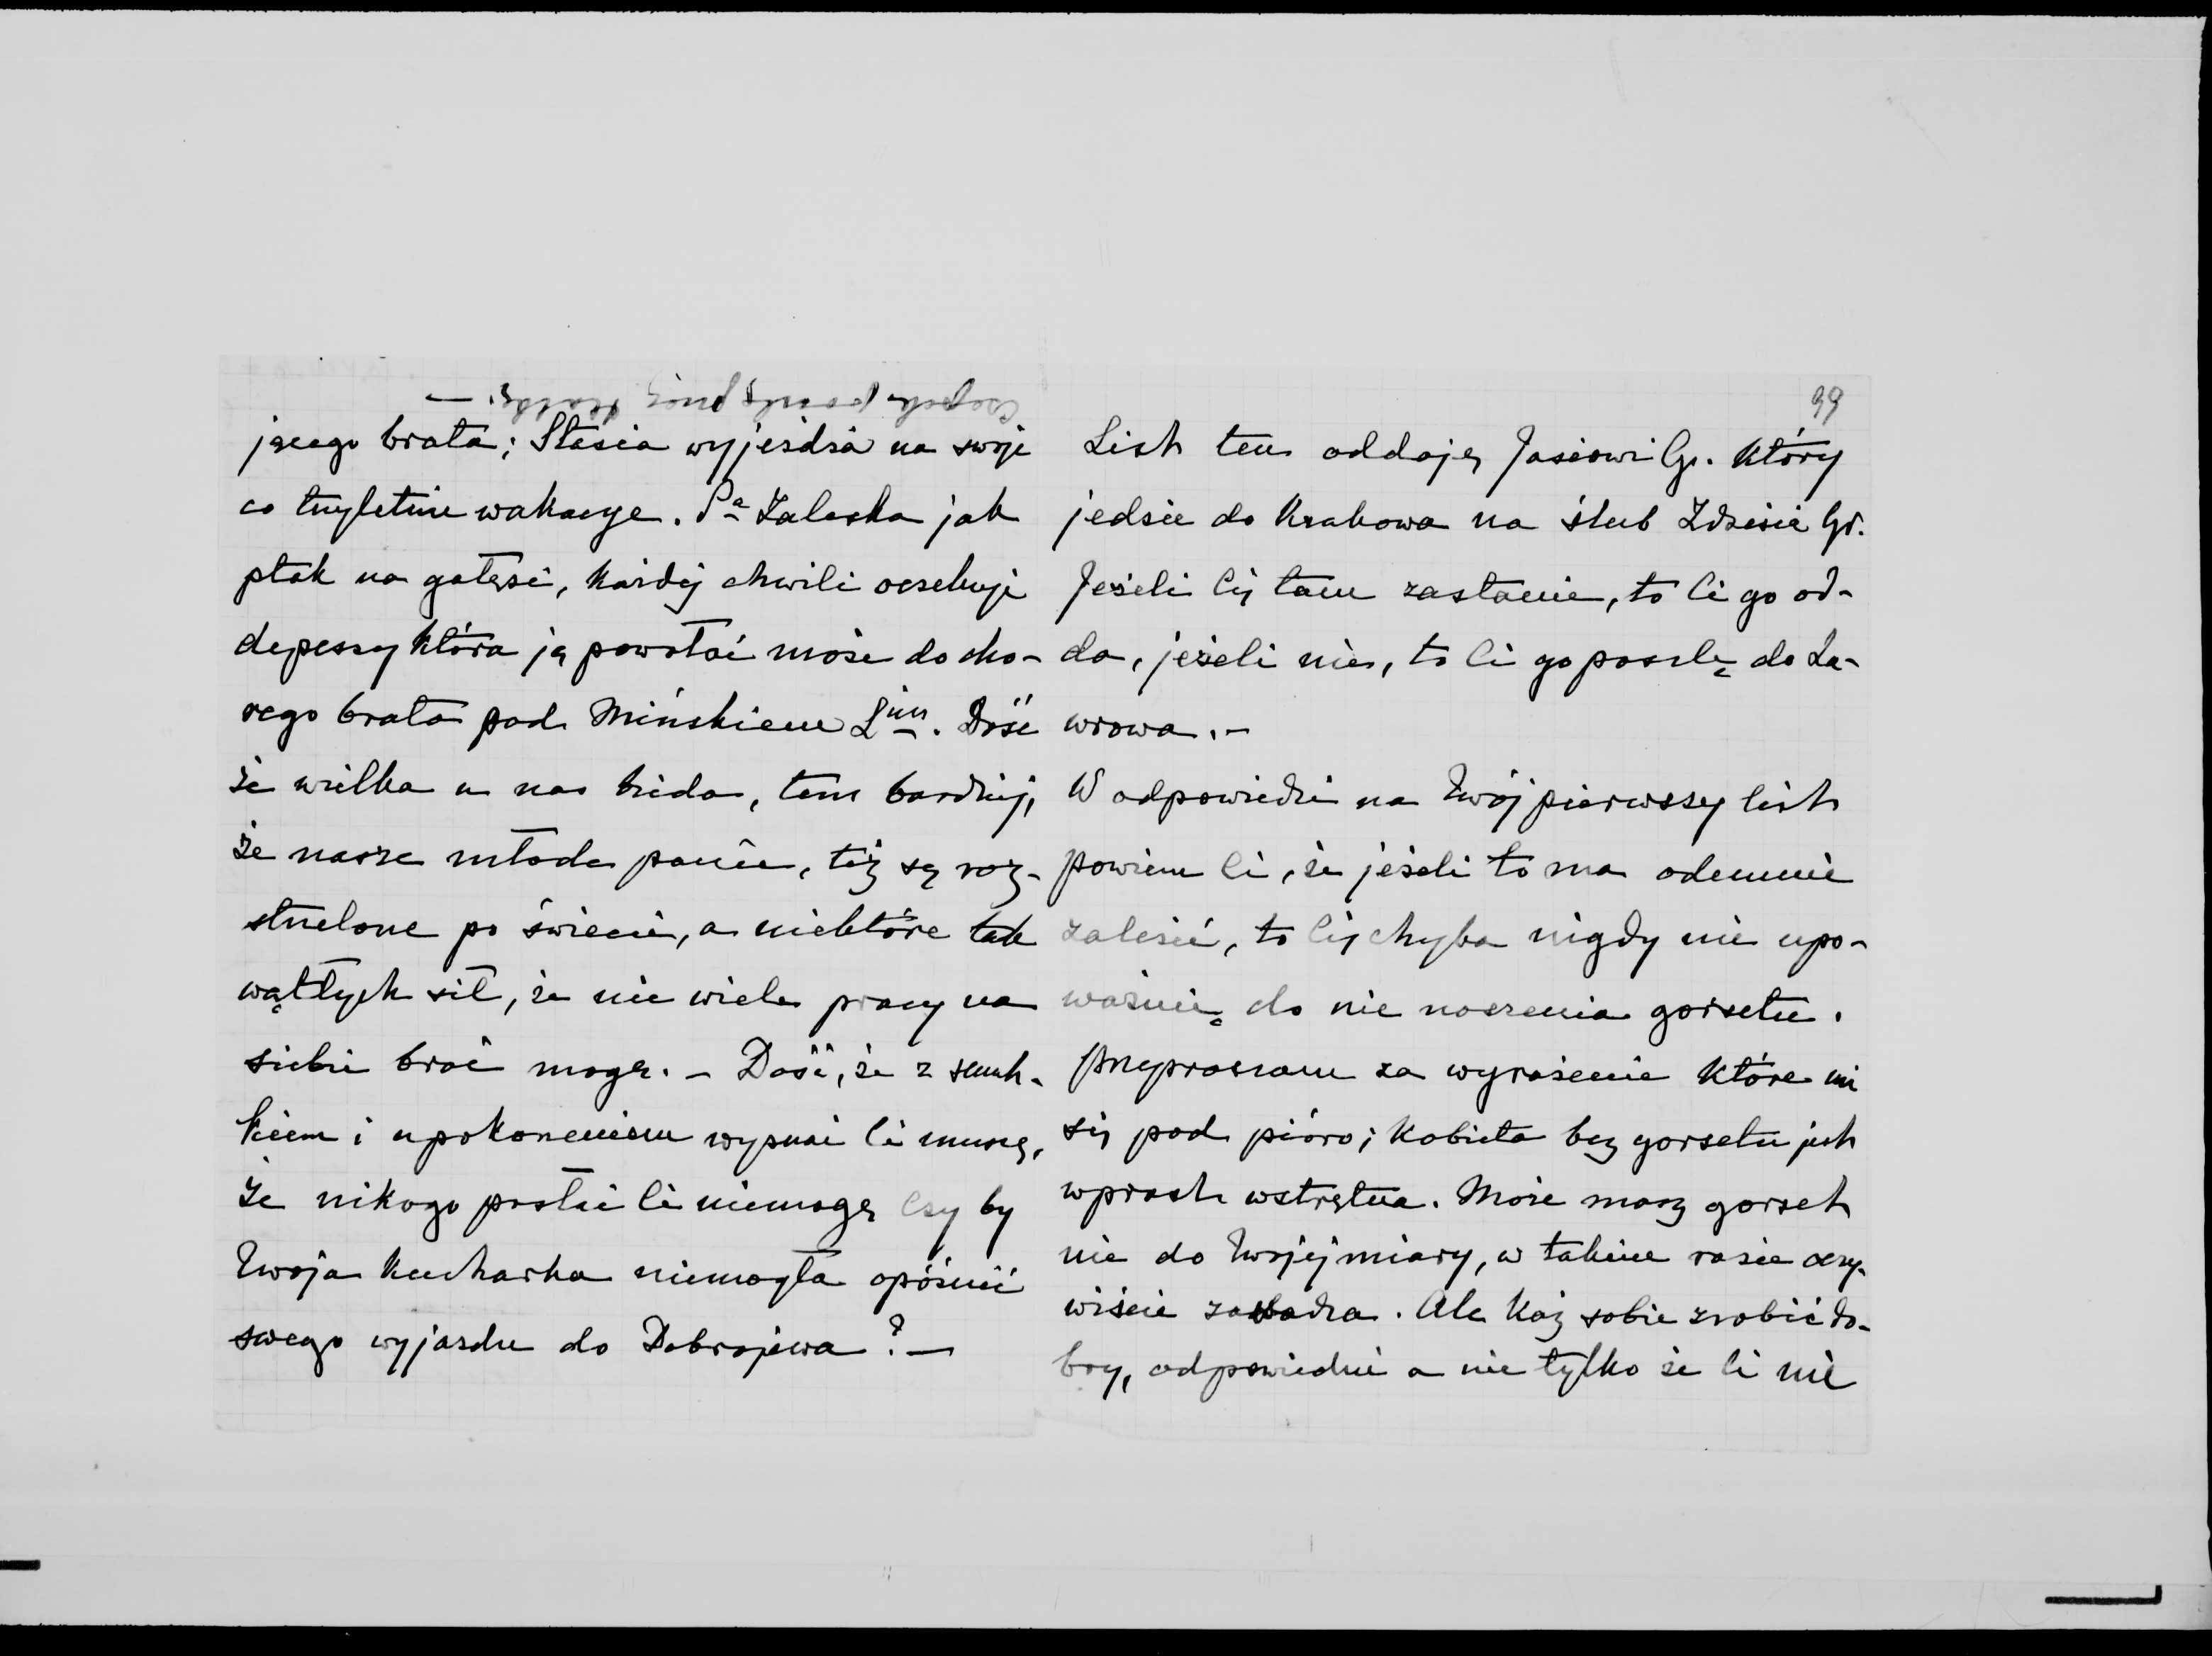 jącego brata; Stasia wyjeżdża na swoje
co trzyletnie wakacye. Pa Zaleska jak
ptak na gałęzi, każdej chwili oczekuje
depeszy która ją powołać może do cho-
rego brata pod Mińskiem Lim. Dość
że wielka u nas bieda, tem bardziej,
że nasze młode panie, też są roz-
strzelone po świecie, a niektóre tak
wątłych sił, że nie wiele pracy na
siebie brać mogą. – Dość, że z smut-
kiem i upokorzeniem wyznać Ci muszę,
że nikogo posłać Ci niemogę czy by
Twoja kucharka niemogła opóźnić
swego wyjazdu do Dobrojewa? –
99
List ten oddaję Jasiowi Gr. który
jedzie do Krakowa na ślub Zdzisia Gr.
Jeżeli Cię tam zastanie, to Ci go od-
da, jeżeli nie, to Ci go poszlę do Ła-
wrowa. –
W odpowiedzi na Twój pierwszy list
powiem Ci, że jeżeli to ma odemnie
zależeć, to Cię chyba nigdy nie upo-
ważnię do nie noszenia gorsetu.
Przepraszam za wyrażenie które mi
się pod pióro; kobieta bez gorsetu jest
wprost wstrętna. Może masz gorset
nie do Twojej miary, w takim razie oczy-
wiście zawadza. Ale każ sobie zrobić do-
bry, odpowiedni a nie tylko że Ci nie